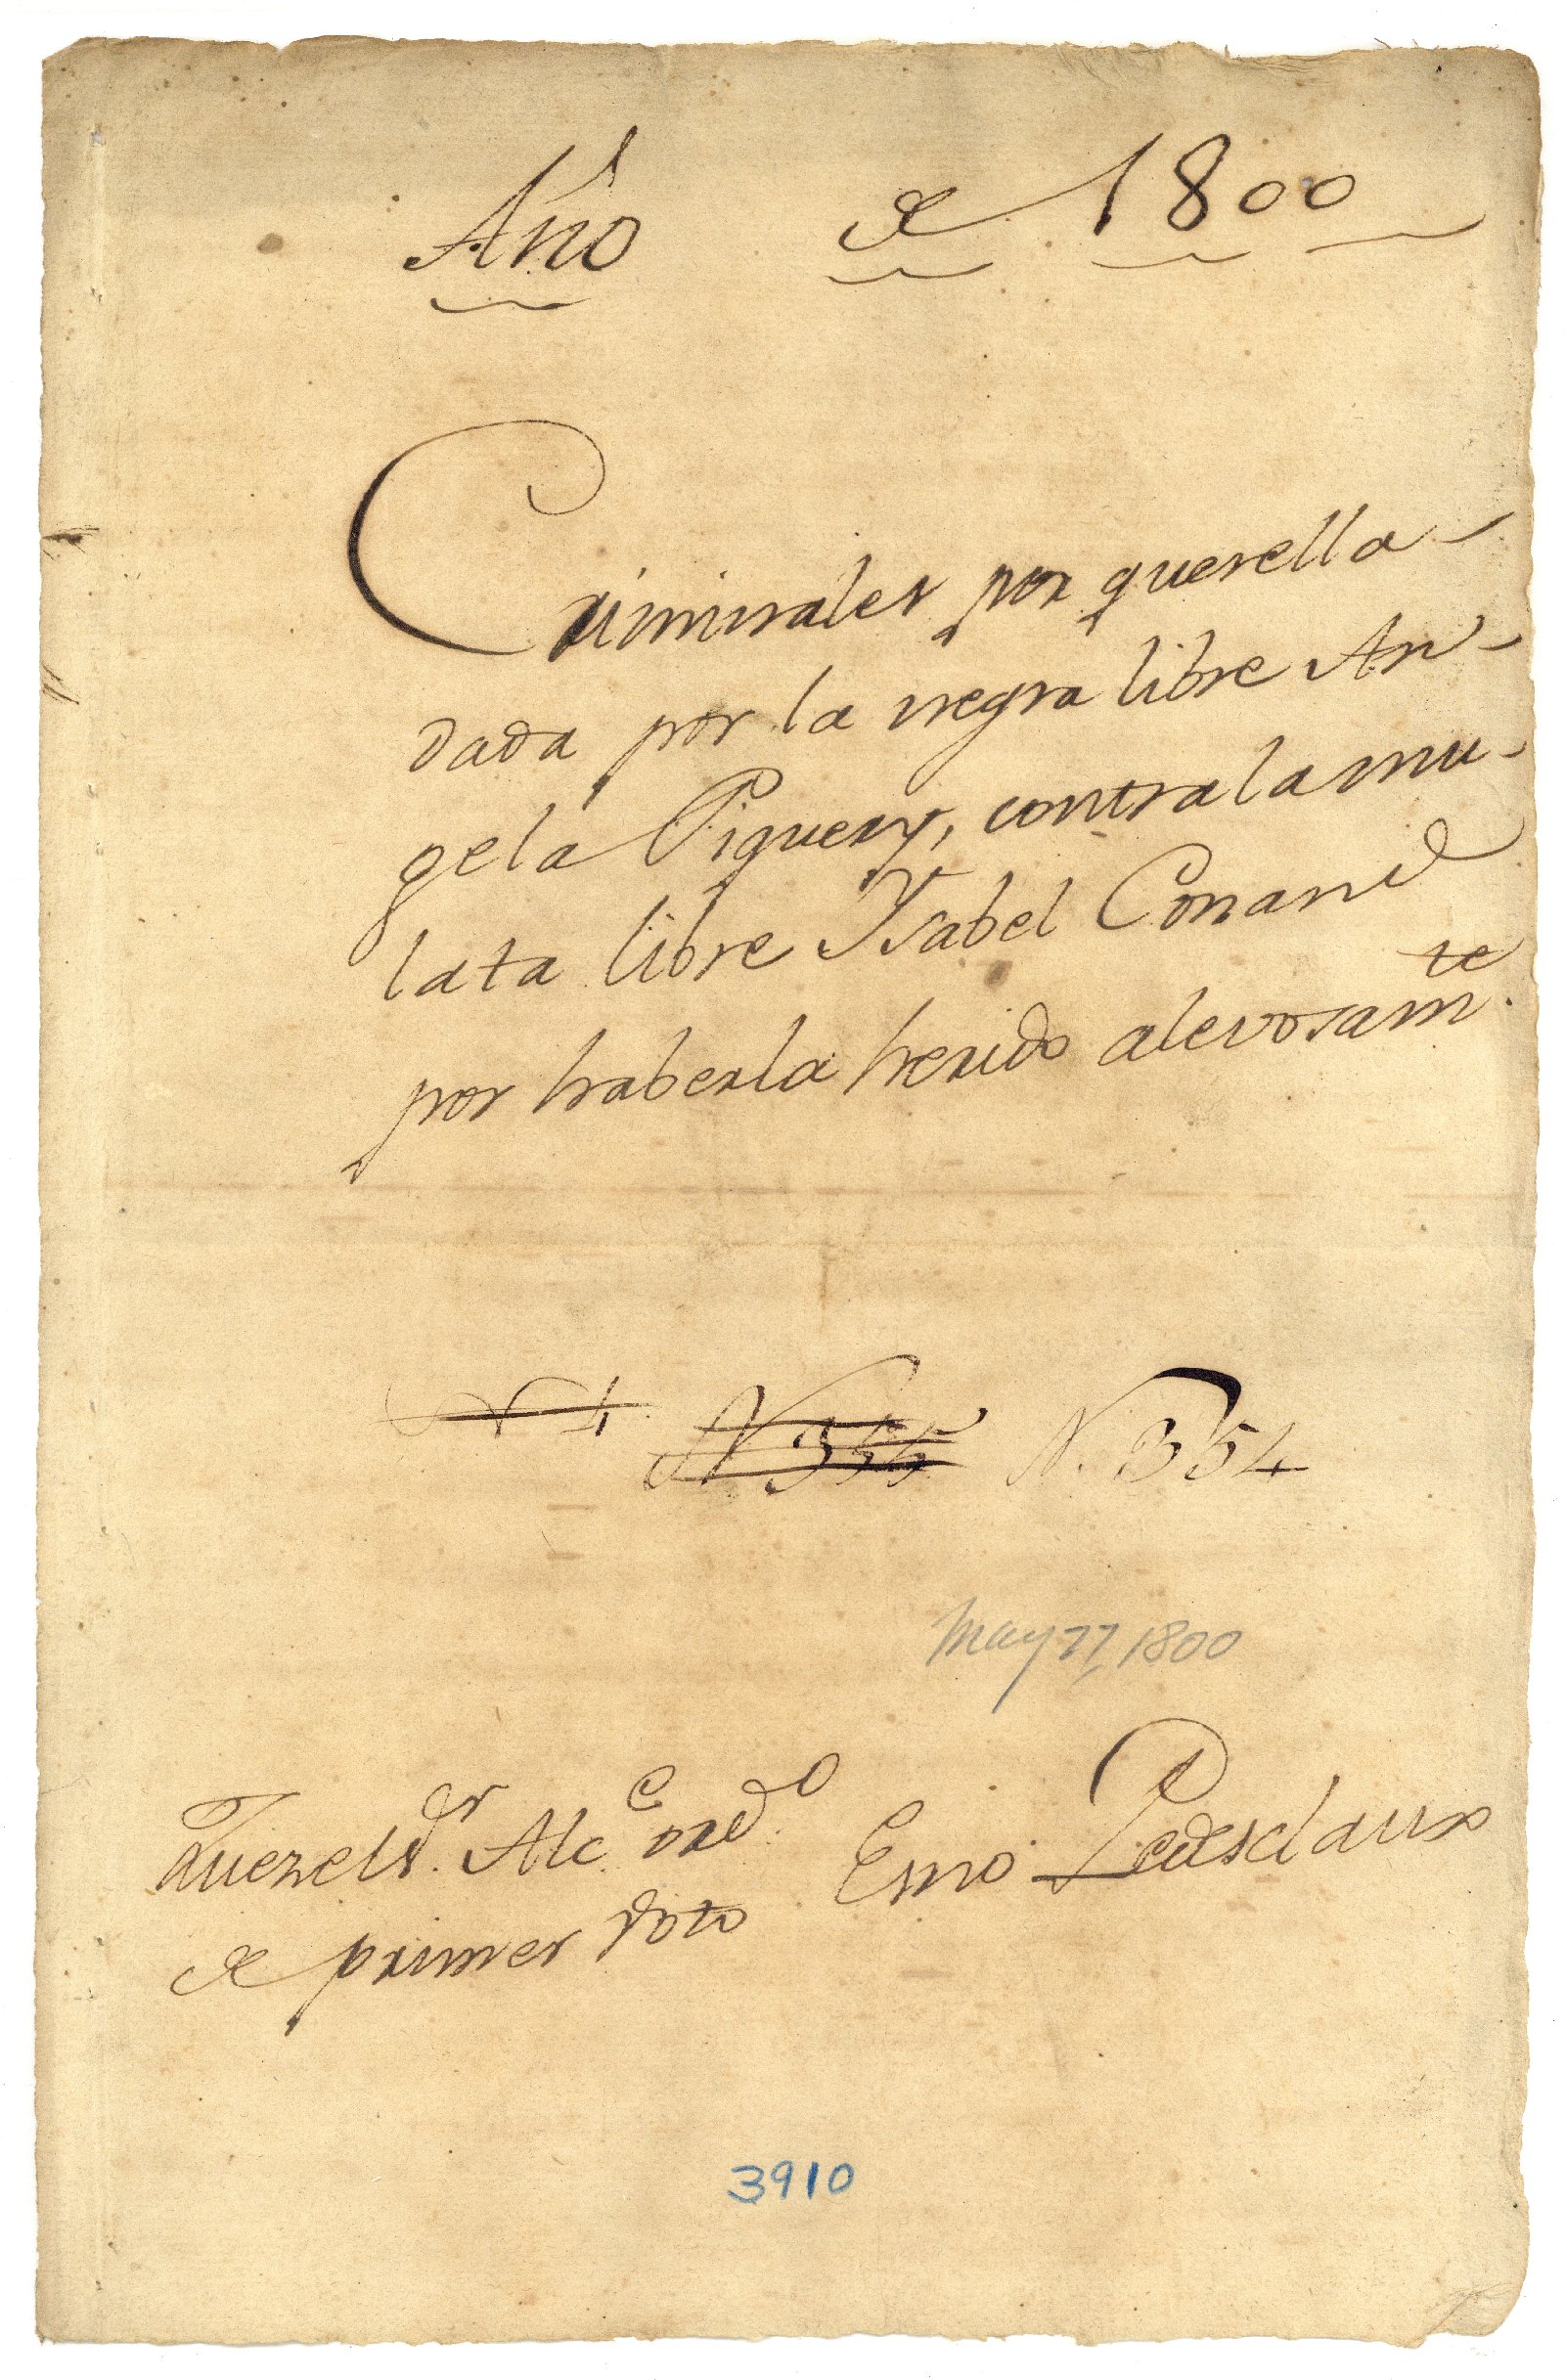 Año de 1800
Criminales por querella
dada por la negra libre An-
gela Piguery, contra la mu-
lata libre Ysabel Conand
por haberla herido alevosam.te
N 4 N 355 N. 354
May 27, 1800
Juez el S.or Alc.e ord.o Esno Pedesclaux
de primer voto
3910